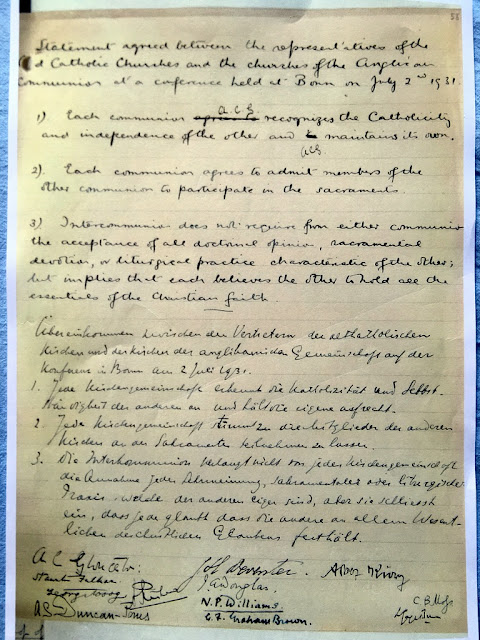 Statement agreed between the representatives of the
d Catholic Churches and the churches of the Anglican
Communion at a conference held at Bonn on July 2nd 1931.
A.C.G.
1) Each communion agrees to recognizes the Catholicity
and independence of the other and maintains its own.
ACG
2). Each communion agrees to admit members of the
other communion to participate in the sacraments.
3) Intercommunion does not require from either communion
the acceptance of all doctrinal opinion, sacramental
devotion, or liturgical practice characteristic of the other;
but implies that each believes the other to hold all the
essentials of the Christian faith.
Übereinkommen zwischen den Vertretern der altkatholischen
Kirchen und der Kirchen der anglikanischen Gemeinschaft auf der
Konferenz in Bonn am 2 Juli 1931.
1. Jede Kirchengemeinschaft erkennt die Katholizität und Selbst-
ständigkeit der anderen an und hält die eigene aufrecht.
2. Jede Kirchengemeinschaft stimmt zu die Mitglieder der anderen
Kirchen an den Sakramenten teilnehmen zu lassen.
3. Die Interkommunion verlangt nicht von jeder Kirchengemeinschaft
die Annahme jeder Lehrmeinung, sakramentaler oder liturgischer
Praxis welche der anderen eigen sind, aber sie schliesst
ein, dass jede glaubt dass die andere an allem Wesent-
lichen des christlichen Glaubens festhält.
A C Gloucestr:
J. A. Douglas.
A.S. Duncan-Jones
N.P. Williams
G. F. Graham Brown.